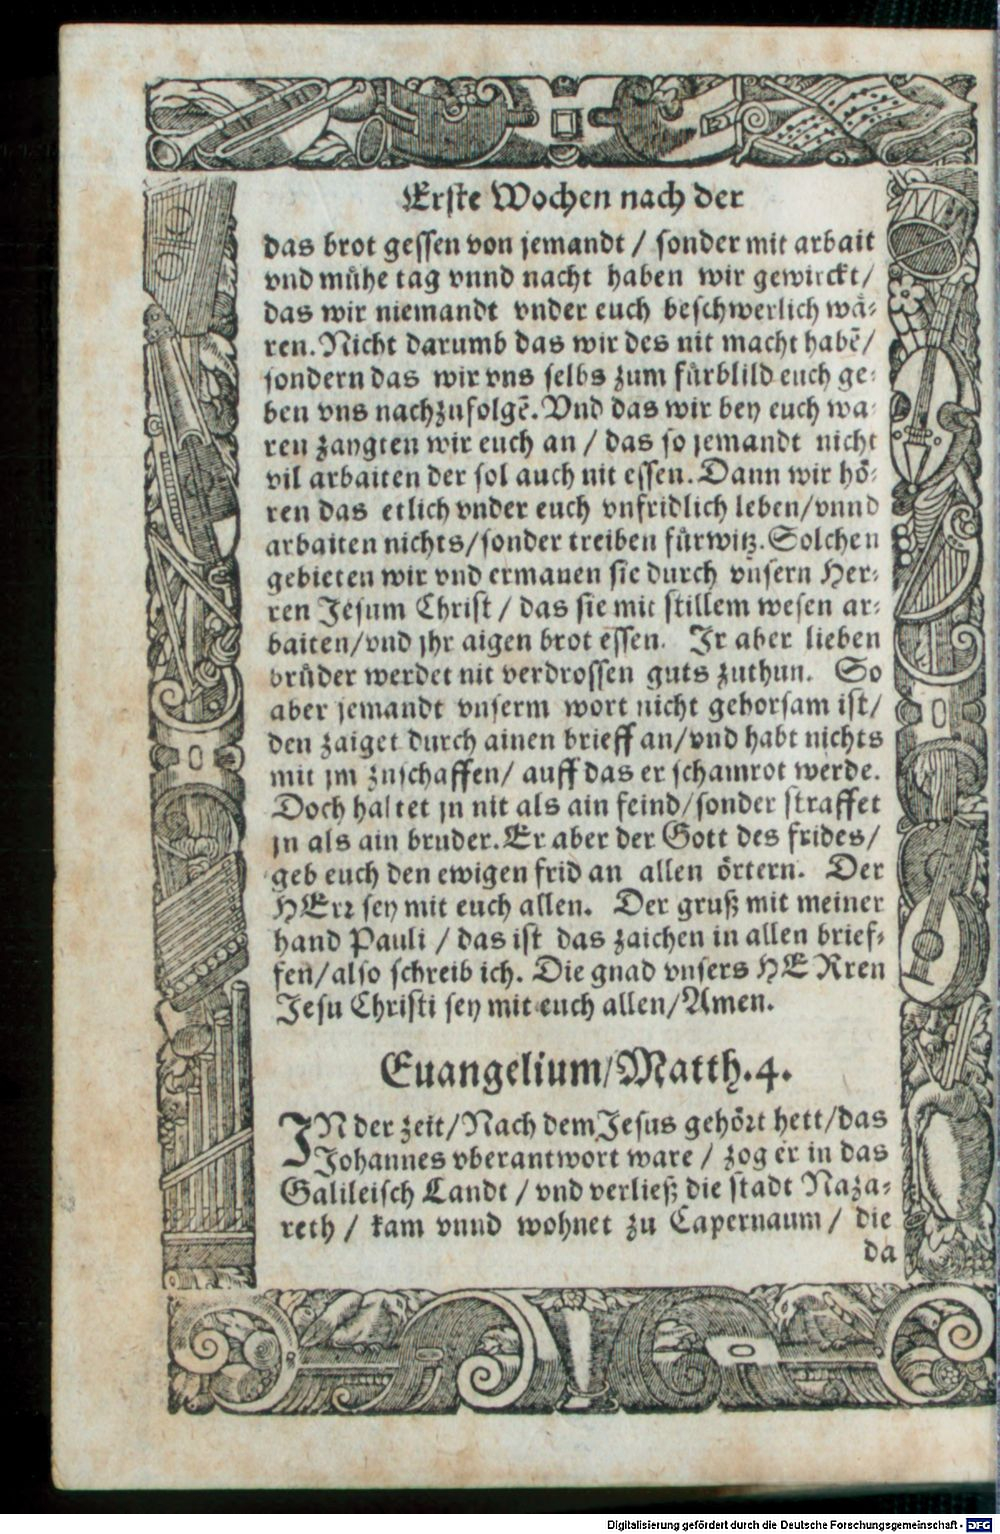 Erste Wochen nach der
das brot gessen von jemandt / sonder mit arbait
vnd mühe tag vnnd nacht haben wir gewirckt/
das wir niemandt vnder euch beschwerlich wä-
ren. Nicht darumb das wir des nit macht habẽ/
sondern das wir vns selbs zum fürblild euch ge-
ben vns nachzufolgẽ. Vnd das wir bey euch wa-
ren zaygten wir euch an / das so jemandt nicht
vil arbaiten der sol auch nit essen. Dann wir hö-
ren das etlich vnder euch vnfridlich leben/vnnd
arbaiten nichts/sonder treiben fürwitz. Solchen
gebieten wir vnd ermanen sie durch vnsern Her-
ren Jesum Christ / das sie mit stillem wesen ar-
baiten/vnd jhr aigen brot essen. Ir aber lieben
brüder werdet nit verdrossen guts zuthun. So
aber jemandt vnserm wort nicht gehorsam ist/
den zaiget durch ainen brieff an/vnd habt nichts
mit jm zuschaffen/ auff das er schamrot werde.
Doch haltet jn nit als ain feind/sonder straffet
jn als ain bruder. Er aber der Gott des frides/
geb euch den ewigen frid an allen örtern. Der
HErr sey mit euch allen. Der gruß mit meiner
hand Pauli / das ist das zaichen in allen brief-
fen/also schreib ich. Die gnad vnsers HERren
Jesu Christi sey mit euch allen/Amen.
Euangelium/Matth.4.
IN der zeit/Nach dem Jesus gehört hett/das
Johannes vberantwort ware / zog er in das
Galileisch Landt / vnd verließ die stadt Naza-
reth / kam vnnd wohnet zu Capernaum / die
da
Digitalisierung gefördert durch die Deutsche Forschungsgemeinschaft - DFG